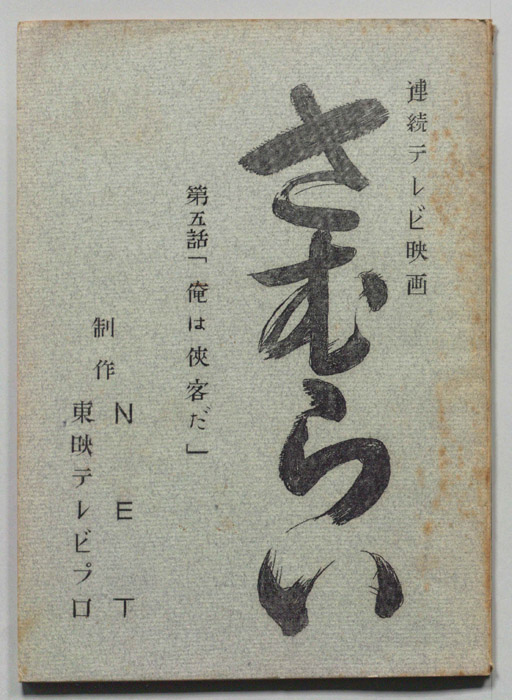 連続テレビ映画
さむらい
第五話「俺は侠客だ」
制作
NET
東映テレビプロ